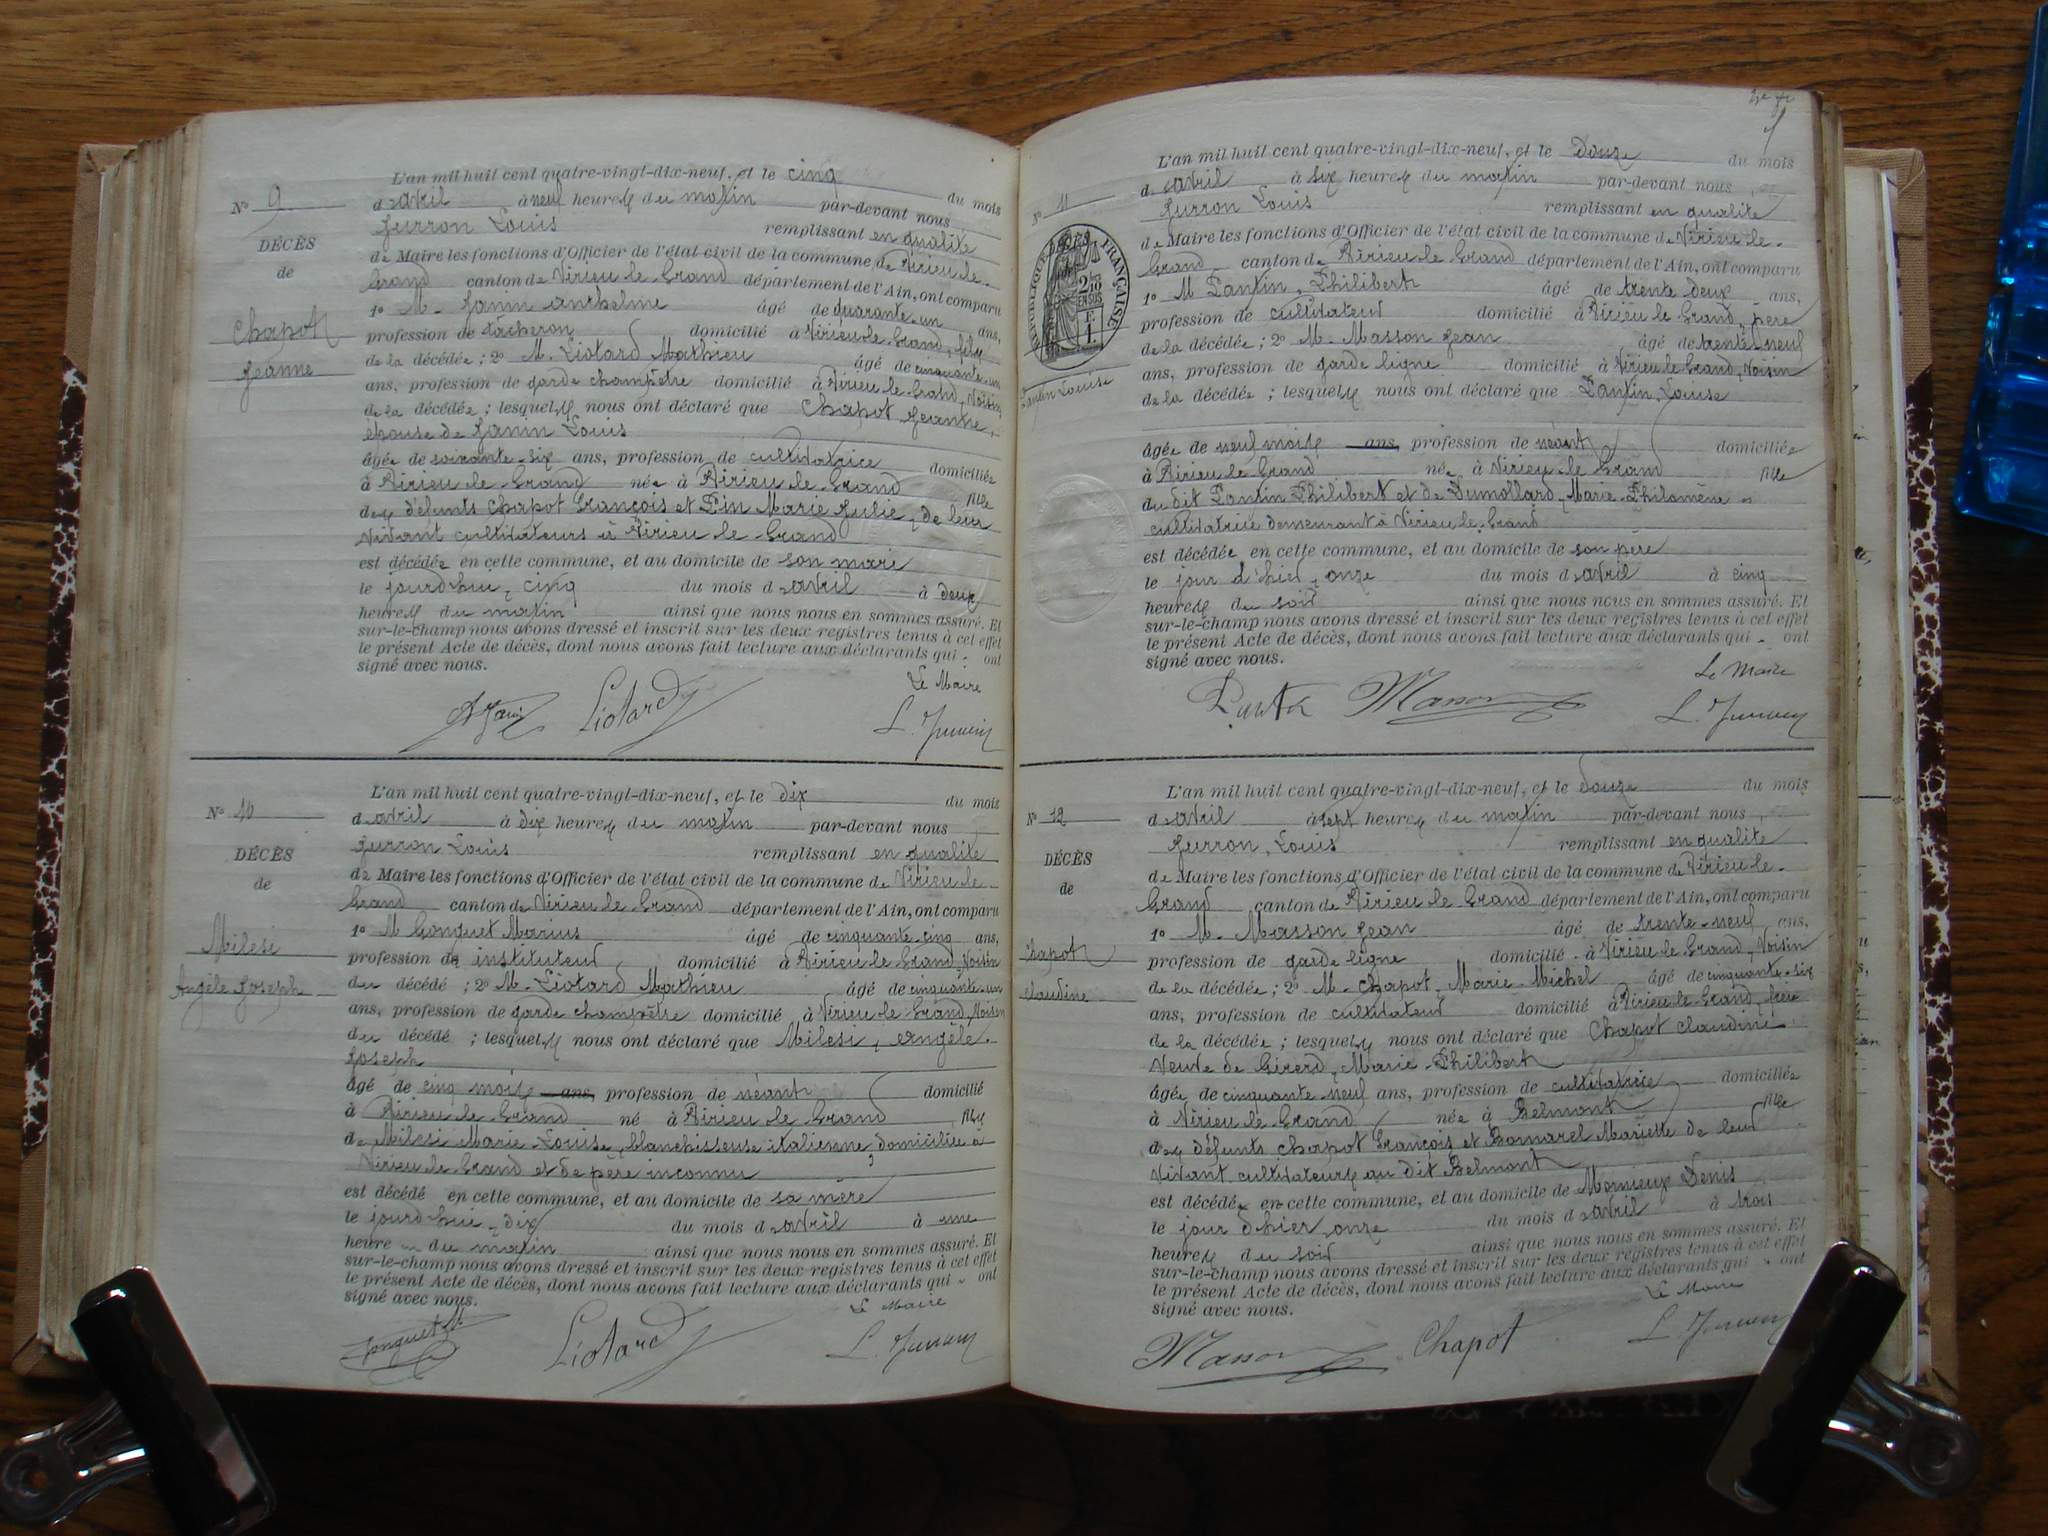 L'an mil huit cent quatre-vingt-dix-neuf, et le cinq du mois
d'avril à neuf heures du matin par-devant nous
Juvron Louis remplissant en qualité
de Maire les fonctions d'Officier de l'état civil de la commune de Virieu-le-
Grand canton de Virieu-le-Grand département de l'Ain, ont comparu
1º M. Janin Anthelme âgé de quarante-un ans,
profession de vacheron domicilié à Virieu-le-Grand, fils
de la décédée ; 2º M. Liotard Mathieu âgé de cinquante-un
ans, profession de garde champêtre domicilié à Virieu-le-Grand, Voisin
de la décédée ; lesquels nous ont déclaré que Chapot Jeanne,
épouse de Janin Louis
âgée de soixante-six ans, profession de cultivatrice domiciliée
à Virieu-le-Grand née à Virieu-le-Grand fille
des défunts Chapot François et Pin Marie Julie, de leur
vivant cultivateurs à Virieu-le-Grand
est décédée en cette commune, et au domicile de son mari
le jourd'hui, cinq du mois d'avril à deux
heures du matin ainsi que nous nous en sommes assuré. Et
sur-le-champ nous avons dressé et inscrit sur les deux registres tenus à cet effet
le présent Acte de décès, dont nous avons fait lecture aux déclarants qui ont
signé avec nous.
Le Maire
Liotard
Nº 9
DÉCÈS
de
Chapot
Jeanne
Nº 10
DÉCÈS
de
Milesi
Angèle Joseph
L'an mil huit cent quatre-vingt-dix-neuf, et le dix du mois
d'avril à dix heures du matin par-devant nous
Juvron Louis remplissant en qualité
de Maire les fonctions d'Officier de l'état civil de la commune de Virieu-le-
Grand canton de Virieu-le-Grand département de l'Ain, ont comparu
1º M Gonguet Marius âgé de cinquante-cinq ans,
profession de instituteur domicilié à Virieu-le-Grand, Voisin
du décédé ; 2º M. Liotard Mathieu âgé de cinquante-un
ans, profession de garde champêtre domicilié à Virieu-le-Grand, Voisin
du décédé ; lesquels nous ont déclaré que Milesi, Angèle-
Joseph
âgé de cinq mois ans, profession de néant domicilié
à Virieu-le-Grand né à Virieu-le-Grand fils
de Milesi Marie-Louise, blanchisseuse italienne domiciliée à
Virieu-le-Grand et de père inconnu
est décédé en cette commune, et au domicile de sa mère
le jourd'hui, dix du mois d'avril à une
heure du matin ainsi que nous nous en sommes assuré. Et
sur-le-champ nous avons dressé et inscrit sur les deux registres tenus à cet effet
le présent Acte de décès, dont nous avons fait lecture aux déclarants qui ont
signé avec nous.
Le Maire
Liotard
Nº 11
DÉCÈS
RÉPUBLIQUE FRANÇAISE
2/10
EN SUS
F.
1.
Pantin Louise
L'an mil huit cent quatre-vingt-dix-neuf, et le douze du mois
d'avril à six heures du matin par-devant nous
Juvron Louis remplissant en qualité
de Maire les fonctions d'Officier de l'état civil de la commune de Virieu-le-
Grand canton de Virieu-le-Grand département de l'Ain, ont comparu
1º M Pantin, Philibert âgé de trente-deux ans,
profession de cultivateur domicilié à Virieu-le-Grand, père
de la décédée ; 2º M. Masson Jean âgé de trente-neuf
ans, profession de garde ligne domicilié à Virieu-le-Grand, Voisin
de la décédée ; lesquels nous ont déclaré que Pantin, Louise
âgée de neuf mois ans, profession de néant domiciliée
à Virieu-le-Grand née à Virieu-le-Grand fille
du dit Pantin Philibert et de Dumollard, Marie-Philomène
cultivatrice demeurant à Virieu-le-Grand
est décédée en cette commune, et au domicile de son père
le jour d'hier, onze du mois d'avril à cinq
heures du soir ainsi que nous nous en sommes assuré. Et
sur-le-champ nous avons dressé et inscrit sur les deux registres tenus à cet effet
le présent Acte de décès, dont nous avons fait lecture aux déclarants qui ont
signé avec nous.
Le Maire
Masson
Nº 12
DÉCÈS
de
Chapot
Claudine
L'an mil huit cent quatre-vingt-dix-neuf, et le douze du mois
d'avril à sept heures du matin par-devant nous
Juvron, Louis remplissant en qualité
de Maire les fonctions d'Officier de l'état civil de la commune de Virieu-le-
Grand canton de Virieu-le-Grand département de l'Ain, ont comparu
1º M. Masson Jean âgé de trente-neuf ans,
profession de garde ligne domicilié à Virieu-le-Grand, Voisin
de la décédée ; 2º M. Chapot, Marie-Michel âgé de cinquante-six
ans, profession de cultivateur domicilié à Virieu-le-Grand, frère
de la décédée ; lesquels nous ont déclaré que Chapot Claudine
Veuve de Girerd, Marie-Philibert
âgée de cinquante-neuf ans, profession de cultivatrice domiciliée
à Virieu-le-Grand née à Belmont fille
des défunts Chapot François et Bomarel Mariette de leur
vivant cultivateurs au dit Belmont
est décédée en cette commune, et au domicile de Monieux Denis
le jour d'hier onze du mois d'avril à trois
heures du soir ainsi que nous nous en sommes assuré. Et
sur-le-champ nous avons dressé et inscrit sur les deux registres tenus à cet effet
le présent Acte de décès, dont nous avons fait lecture aux déclarants qui ont
signé avec nous.
Le Maire
Masson Chapot